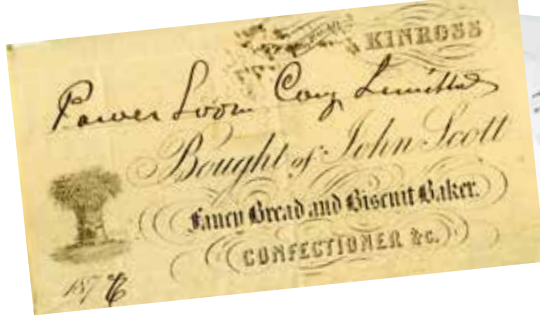 KINROSS
Power Loom Coy Limited
Bought of John Scott
Fancy Bread and Biscuit Baker.
CONFECTIONER &c.
187